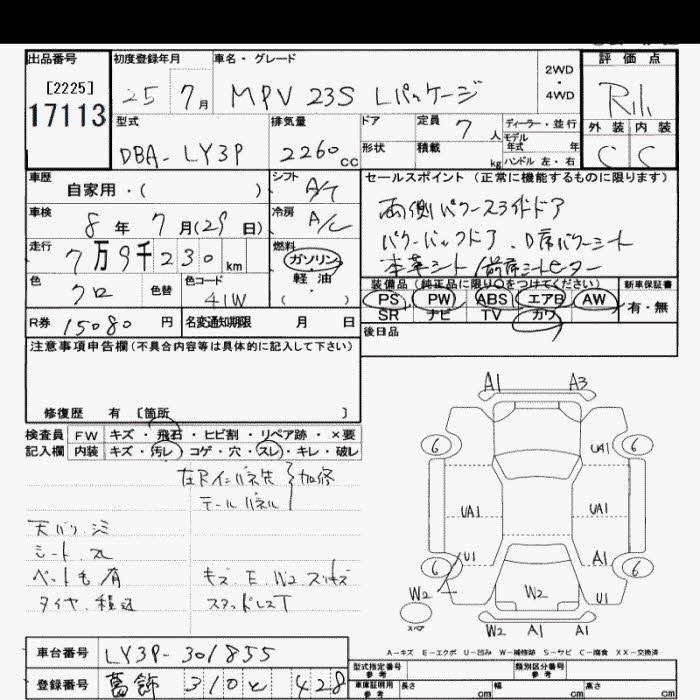 出品番号 初度登録年月 車名・グレード 評価点
[2225]
17113
25 7月 MPV 23S Lパッケージ 2WD・4WD R
型式 排気量 ドア 定員 7人 ディーラー・並行 外装 内装
DBA-LY3P 2260cc 形状 積載 kg モデル年式 年 C C
ハンドル 左・右
車歴 シフト セールスポイント(正常に機能するものに限ります)
自家用・( ) A/T
車検 冷房 両側パワースライドドア
8年7月(29日) A/C パワーバックドア、D席パワーシート
走行 燃料 本革シート/前席シートヒーター
7万9千230km ガソリン・軽油・( )
色 色替 色コード 装備品(純正品に限り○をつけてください) 新車保証書
クロ 41W PS PW ABS エアB AW 有・無
SR ナビ TV カワ
R券 15080円 名変通知期限 月 日 後日品
注意事項申告欄(不具合内容等は具体的に記入して下さい)
修復歴 有 [箇所 ]
検査員 FW キズ・飛石・ヒビ割・リペア跡・×要
記入欄 内装 キズ・汚レ・コゲ・穴・スレ・キレ・破レ
加修
テールパネル
シート
ペット毛有
タイヤ、積込
キズ E W2
スタッドレスT
A1 A3
6 6
UA1
UA1 UA1
U1 A1
6 6
W2 W2 U1
スペア
W2 A1 A1
A-キズ E-エクボ U-凹み W-補修跡 S-サビ C-腐食 XX-交換済
車台番号 LY3P-301855
登録番号 葛飾 310 と 428
型式指定番号 参考 類別区分番号 参考
車庫証明用 参考 長さ cm 幅 cm 高さ cm